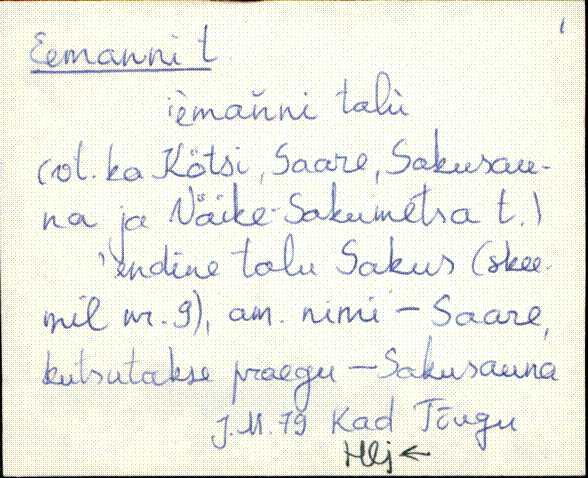 Eemanni t.
ièmaǹni talù
(vt. ka Kötsi, Saare, Sakusau-
na ja Väike-Sakumetsa t.)
endine talu Sakus (skee-
mil nr. 9), am. nimi - Saare,
kutsutakse praegu - Sakusauna
J.M. 79 Kad Tõugu
Hlj ←